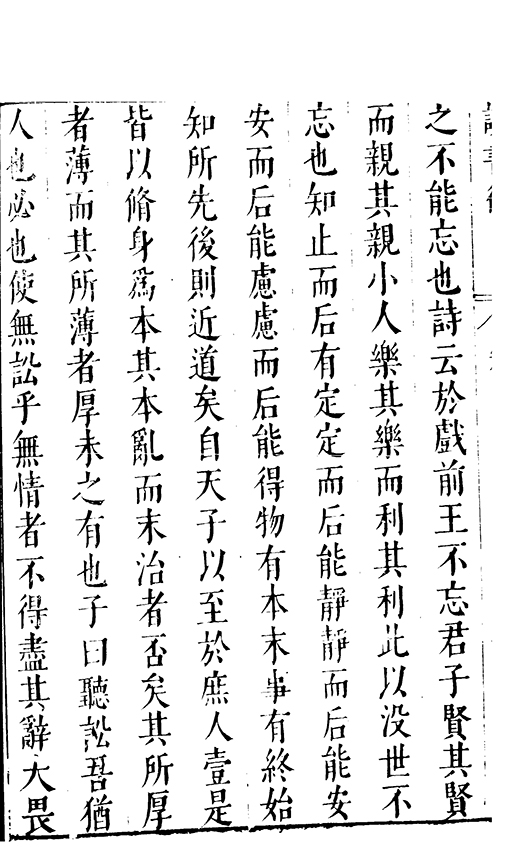 之不能忘也詩云於戲前王不忘君子賢其賢
而親其親小人樂其樂而利其利此以没世不
忘也知止而后有定定而后能靜靜而后能安
安而后能慮慮而后能得物有本末事有終始
知所先後則近道矣自天子以至於庶人壹是
皆以脩身爲本其本亂而末治者否矣其所厚
者薄而其所薄者厚未之有也子曰聽訟吾猶
人也必也使無訟乎無情者不得盡其辭大畏